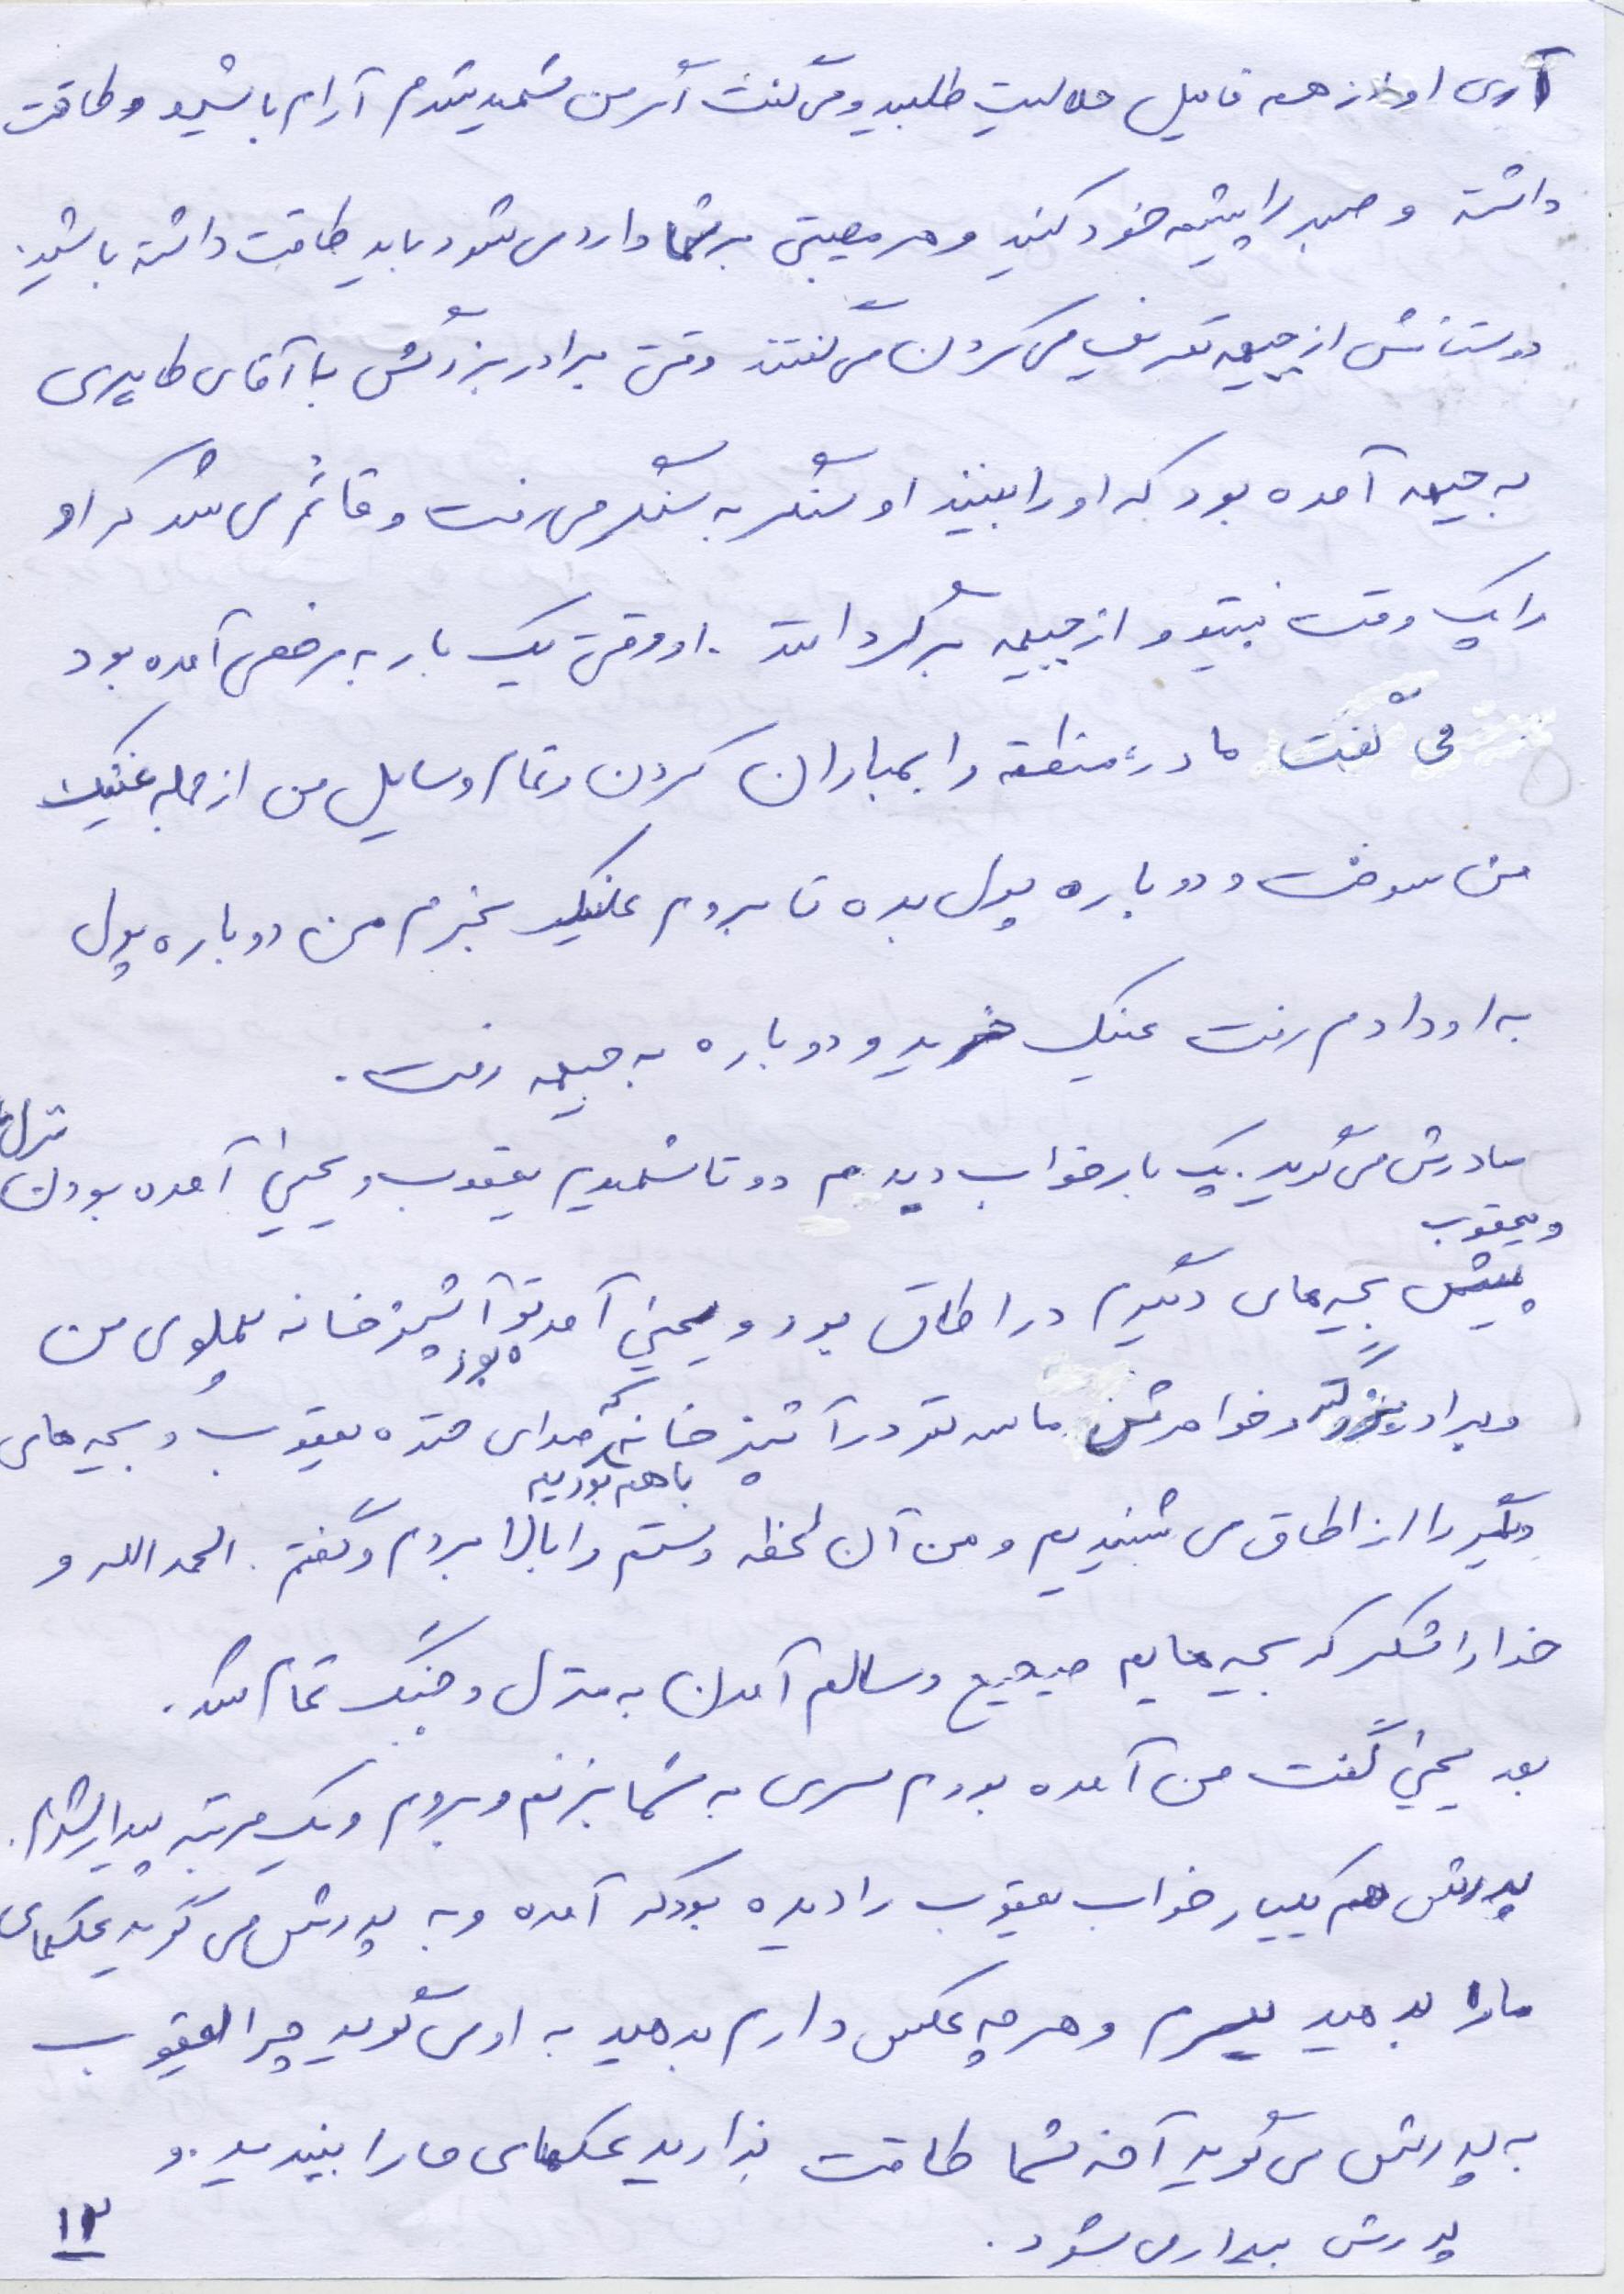 آری او از همه فامیل حلالیت طلبید و می گفت اگر من شهید شدم آرام باشید و طاقت
داشته و صبر را پیشه خود کنید و هر مصیبتی بر شما وارد می شود باید طاقت داشته باشید.
دوستانش از جبهه تعریف می کردن می گفتند وقتی برادر بزرگش با آقای طاهری
به جبهه آمده بود که او را ببیند او سنگر به سنگر می رفت و قائم می شد که او
را یک وقت نبیند و از جبهه برگردانند. او وقتی یک بار به مرخصی آمده بود
می گفت مادر منطقه را بمباران کردن و تمام وسایل من از جمله عینک
من سوخت و دوباره پول بده تا بروم عینک بخرم من دوباره پول
به او دادم رفت عینک خرید و دوباره به جبهه رفت.
مادرش می گوید. یک بار خواب دیدم دو تا شهیدم یعقوب و یحیی آمده بودن منزل
و یعقوب
پیش بچه های دیگرم در اطاق بود و یحیی آمد تو آشپزخانه پهلوی من بود
و برادر بزرگتر و خواهرش ما سه نفر در آشپزخانه با هم بودیم که صدای خنده یعقوب و بچه های
دیگر را از اطاق می شنیدیم و من آن لحظه دستم را بالا بردم و گفتم. الحمد الله و
خدا را شکر که بچه هایم صحیح و سالم آمدن به منزل و جنگ تمام شد.
بعد یحیی گفت من آمده بودم سری به شما بزنم و بروم و یک مرتبه بیدار شدم.
پدرش هم یکبار خواب یعقوب را دیده بود که آمده و به پدرش می گوید عکسهای
ما را بدهید ببرم و هر چه عکس دارم بدهید به او می گوید چرا یعقوب
به پدرش می گوید آخه شما طاقت ندارید عکسهای ما را ببینید. و
پدرش بیدار می شود.
۱۳